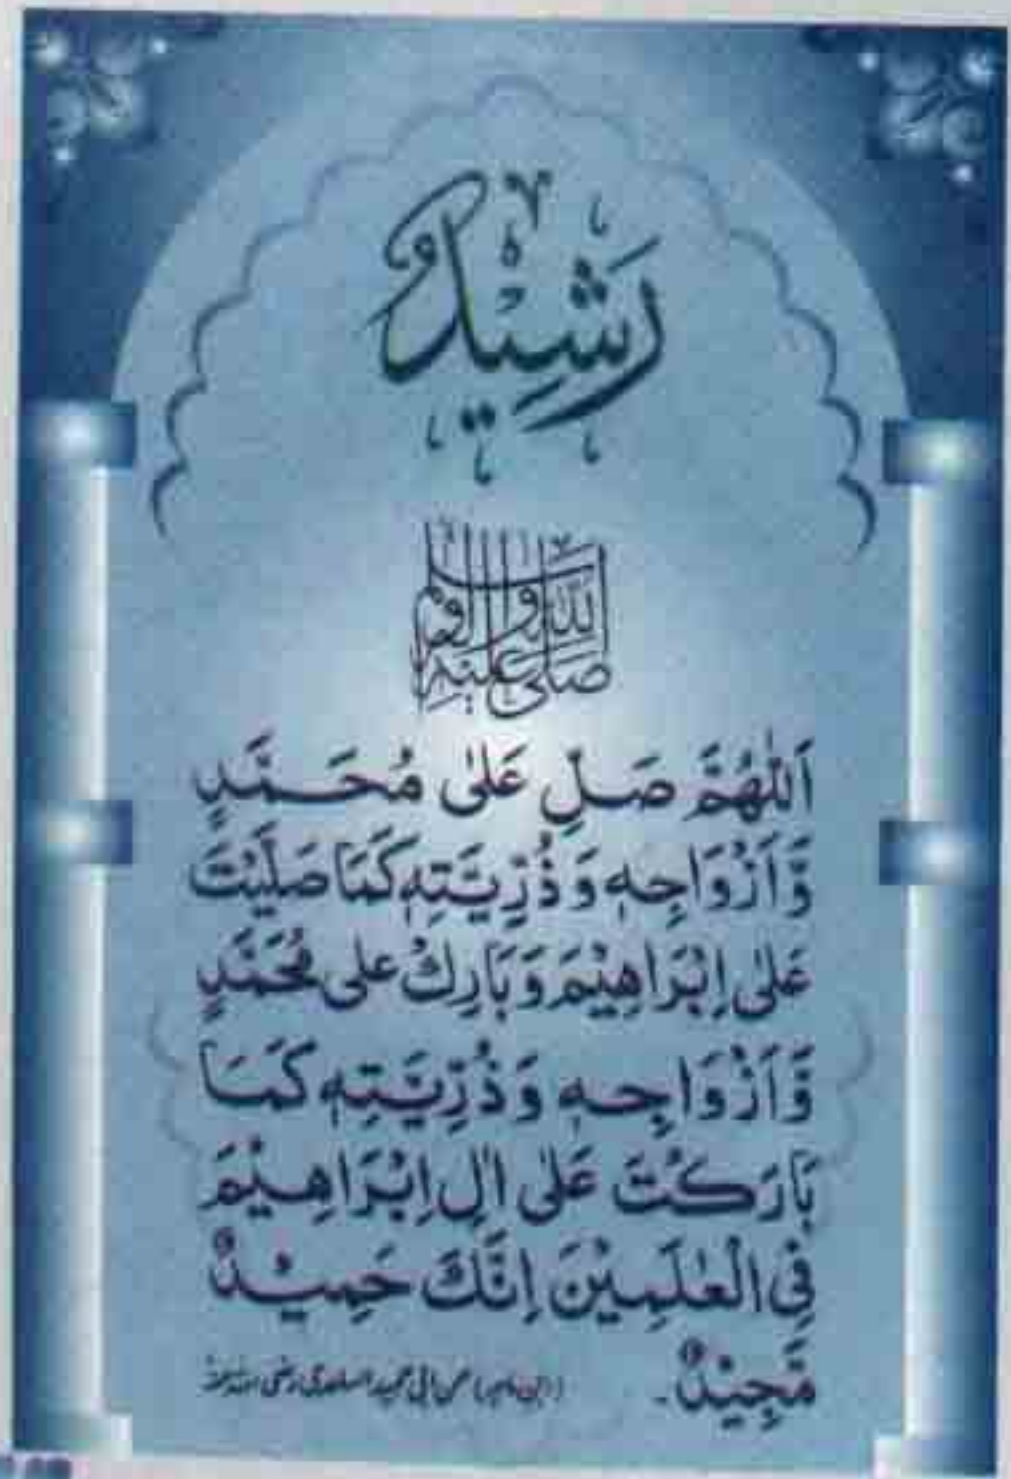 رَشِيْدٌ
صَلَّى اللّٰهُ عَلَيْهِ وَاٰلِهٖ وَسَلَّمَ
اَللّٰهُمَّ صَلِّ عَلٰى مُحَمَّدٍ
وَّاَزْوَاجِهٖ وَذُرِّيَّتِهٖ كَمَا صَلَّيْتَ
عَلٰى اِبْرَاهِيْمَ وَبَارِكْ على مُحَمَّدٍ
وَّاَزْوَاجِهٖ وَذُرِّيَّتِهٖ كَمَا
بَارَكْتَ عَلٰى اٰلِ اِبْرَاهِيْمَ
فِى الْعٰلَمِيْنَ اِنَّكَ حَمِيْدٌ
مَّجِيْدٌ۔ (ابن ماجہ) عن ابی حمید الساعدی رضی اللہ عنہ